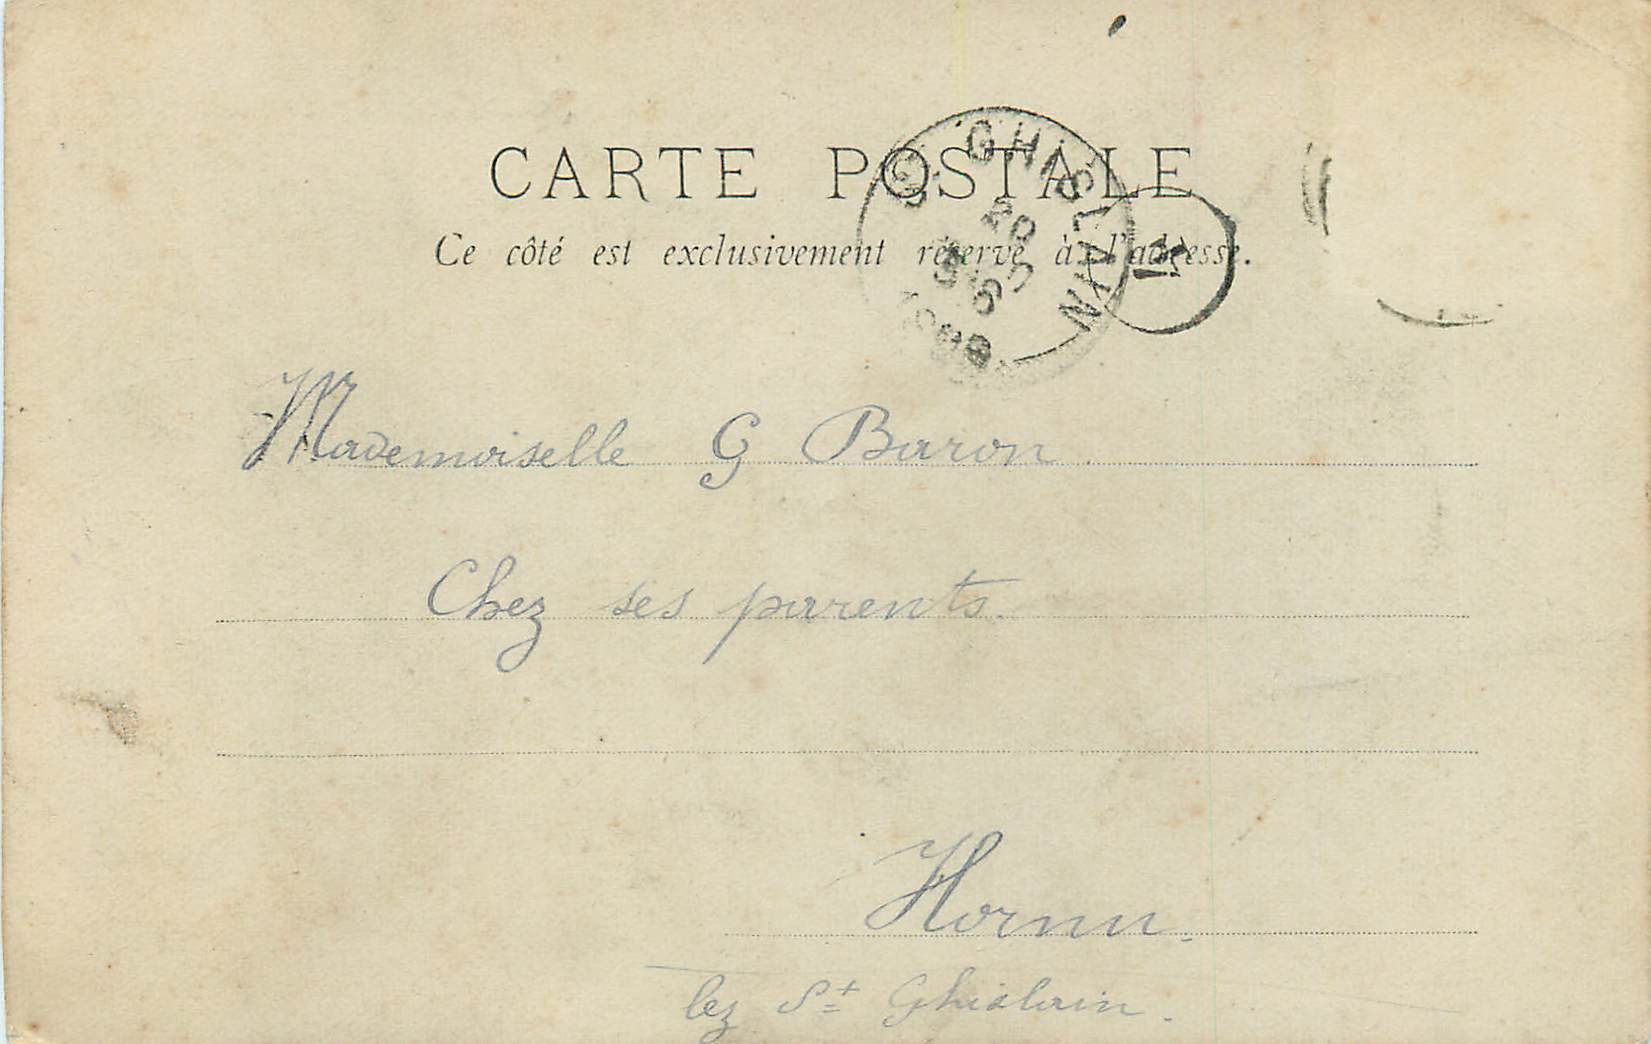 CARTE POSTALE
Ce côté est exclusivement réservé à l'adresse.
ST GHISLAIN
Mademoiselle G Baron
Chez ses parents.
Hornu.
lez St Ghislain.